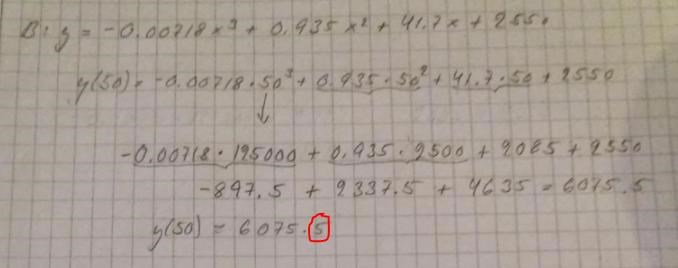 B: y = -0.00718x³ + 0.935x² + 41.7x + 2550
y(50) = -0.00718·50³ + 0.935·50² + 41.7·50 + 2550
-0.00718·125000 + 0.935·2500 + 2085 + 2550
-897.5 + 2337.5 + 4635 = 6075.5
y(50) = 6075.5